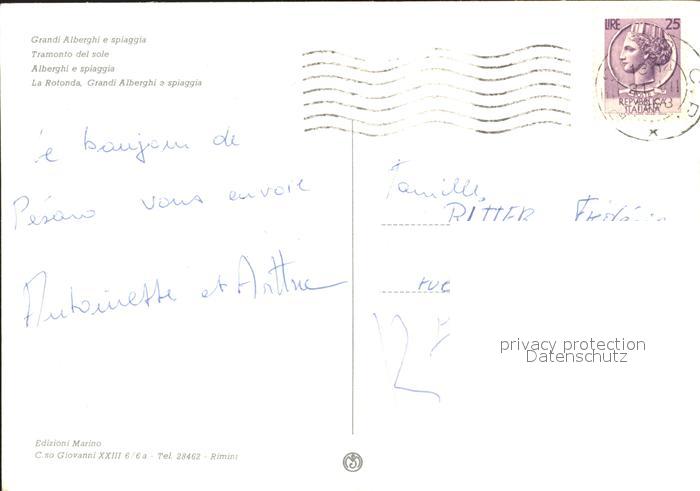 Grandi Alberghi e spiaggia
Tramonto del sole
Alberghi e spiaggia
La Rotonda, Grandi Alberghi e spiaggia
LIRE 25
REPVBBLICA
ITALIANA
de
Pésaro vous envoie
Antoinette et
Famille
RITTER
rue
privacy protection
Datenschutz
Edizioni Marino
C.so Giovanni XXIII 6/6a - Tel. 28462 - Rimini